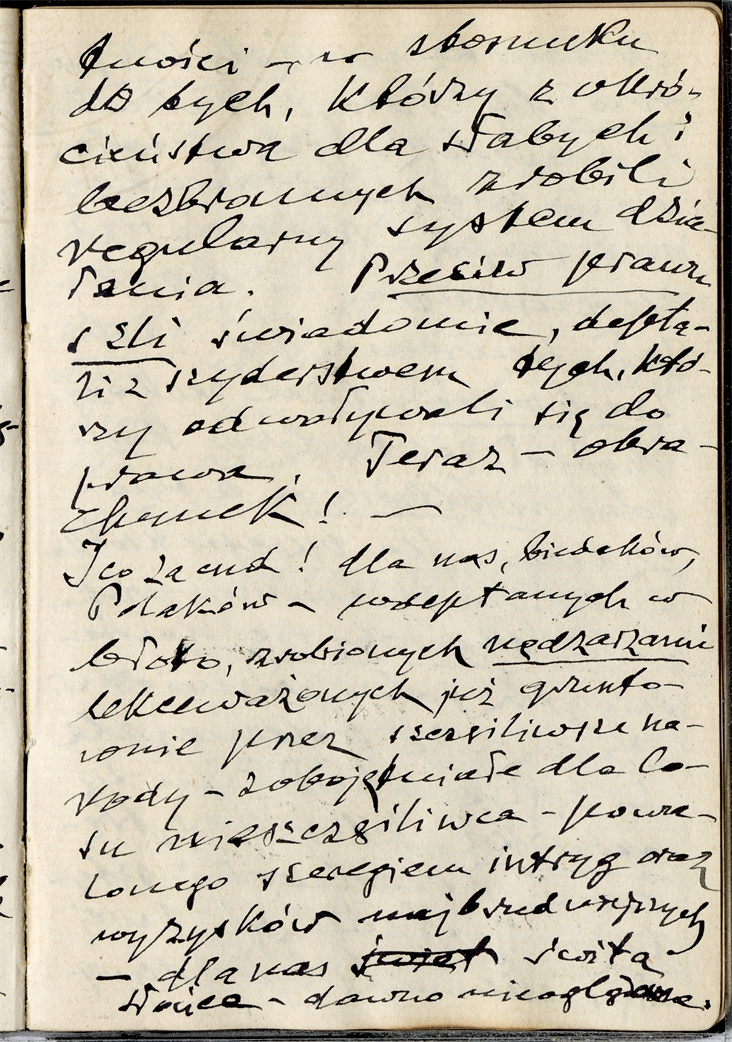 tności – w stosunku
do tych, którzy z okru-
cieństwa dla słabych i
bezbronnych zrobili
regularny system dzia-
łania. Przeciw prawu
szli świadomie, depta-
li z szyderstwem tych, któ-
rzy odwoływali się do
prawa. Teraz – obra-
chunek! —
I co za cud! dla nas, biedaków,
Polaków – wdeptanych w
błoto, zrobionych nędzarzami
lekceważonych już grunto-
wnie przez szczęśliwsze na-
rody – zobojętniałe dla lo-
su nieszczęśliwca – powa-
lonego szeregiem intryg oraz
wyzysków najbrudniejszych
– dla nas świet świta
słońce – dawno nieoglądane.